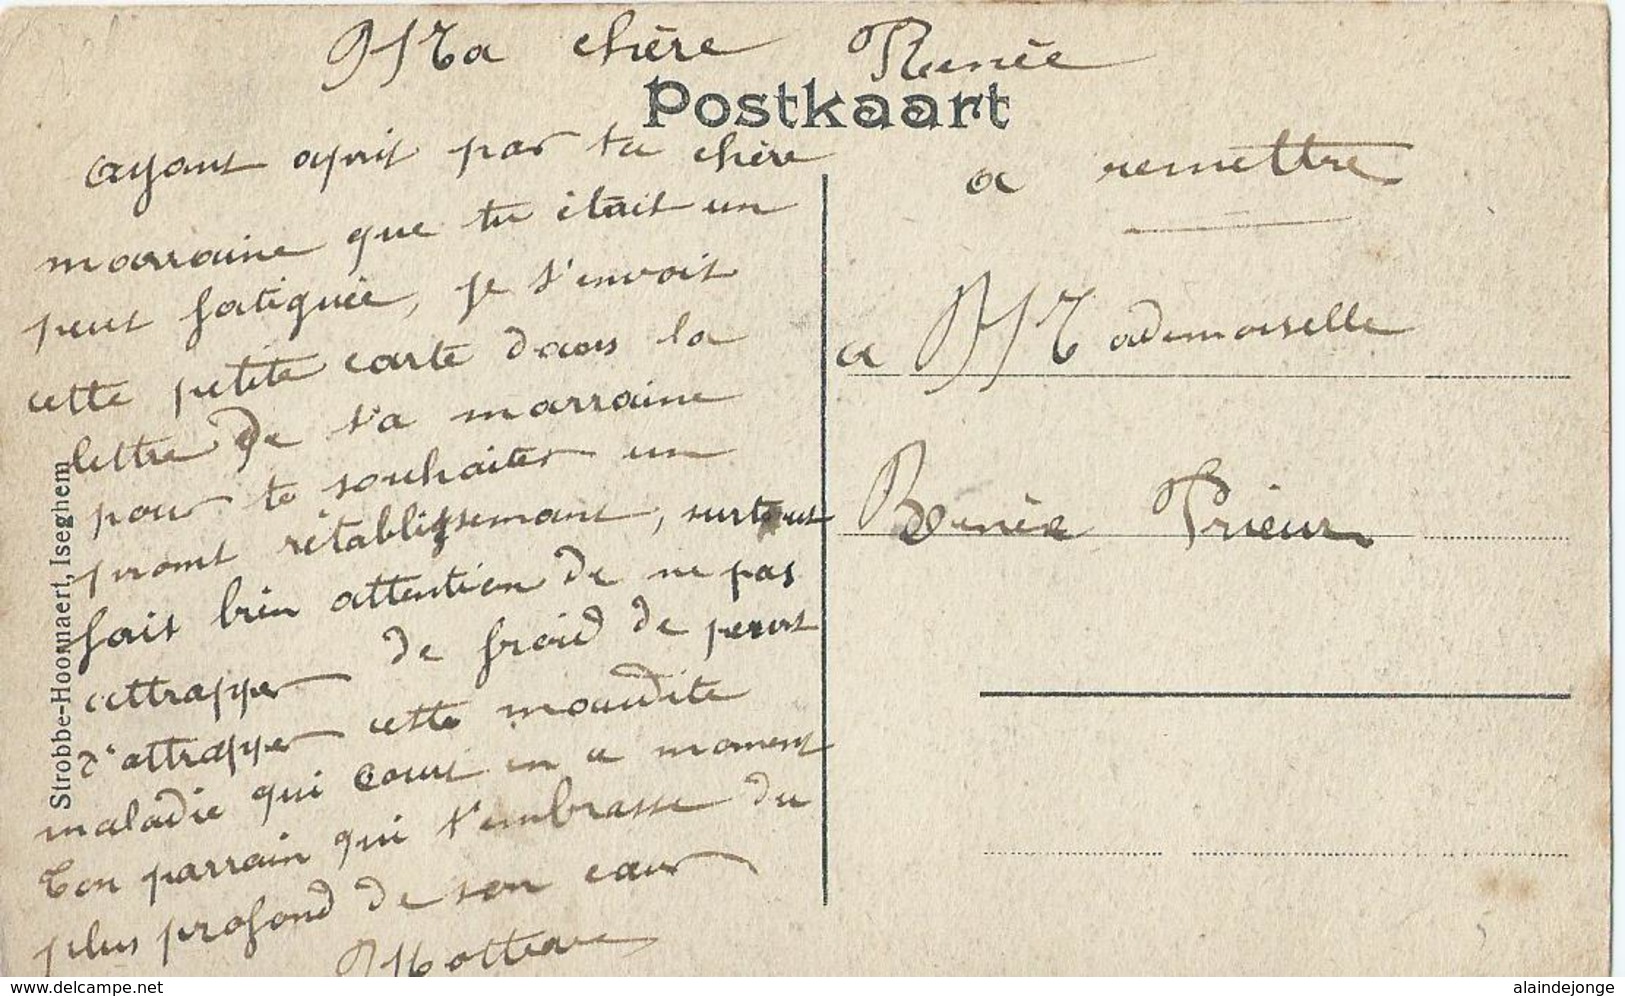 Ma chère Renée
Postkaart
ayant aprit par ta chère
marraine que tu étáit un
peut fatiguée, je t'envoit
cette petite carte dans la
lettre de t'a marraine
pour te souhaiter un
promt rétablissemant, surtout
fait bien attention de ne pas
attrapper de froid de peurt
d'attrapper cette maudite
maladie qui court en ce moment
Ton parrain qui t'embrasse du
plus profond de son cœur
a remettre
a Mademoiselle
Renée Prieur
Strobbe-Hoornaert, Iseghem
www.delcampe.net
alaindejonge